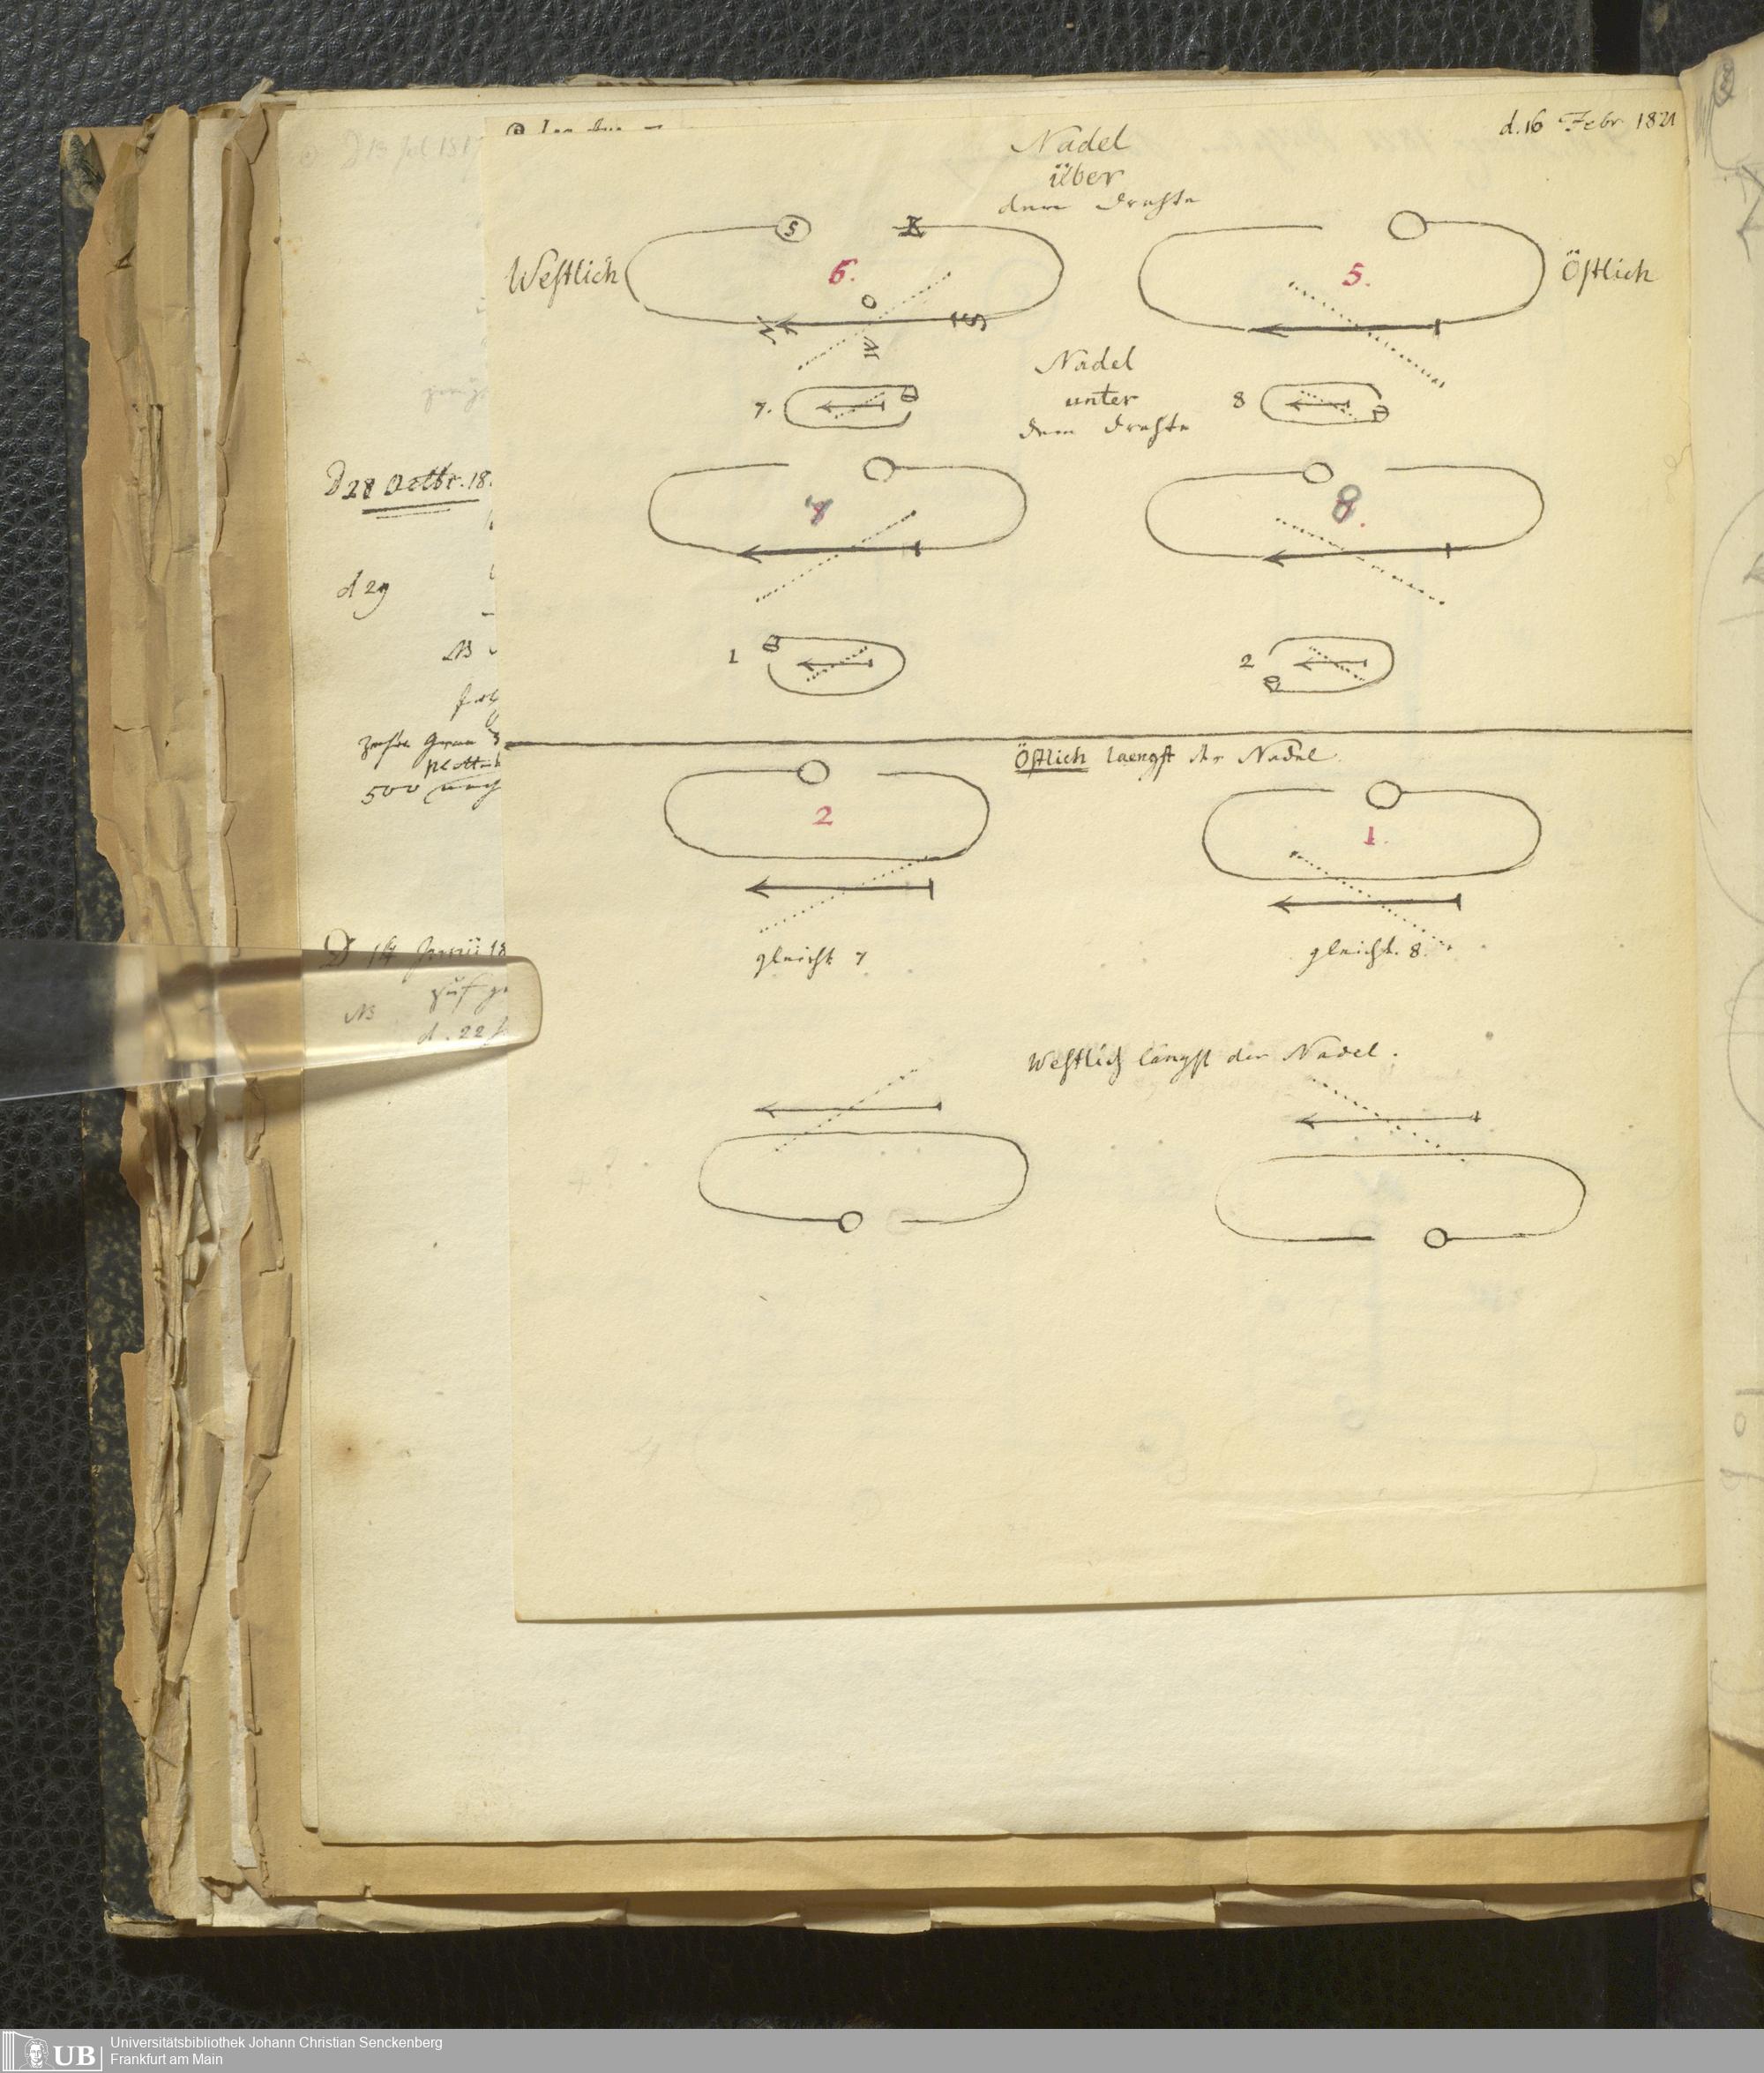 d. 16 Febr 1821
Nadel
über
dem Drahte
S
Westlich
6.
5.
Östlich
O
N
W
S
Nadel
unter
dem Drahte
7.
8
7
8.
D 28 Octbr. 18
d 29
NB
1
2
500
Östlich laengst der Nadel.
2
1.
gleicht 7
gleicht. 8.
D 14 Junii 18
NB
d. 22
Westlich längst der Nadel.
UB
Universitätsbibliothek Johann Christian Senckenberg
Frankfurt am Main